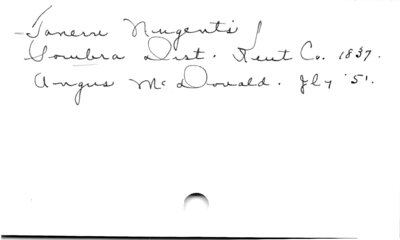 - Tanerre Nugent's
Sombra Dist. Kent Co. 1837.
Angus McDonald. Jly '51.